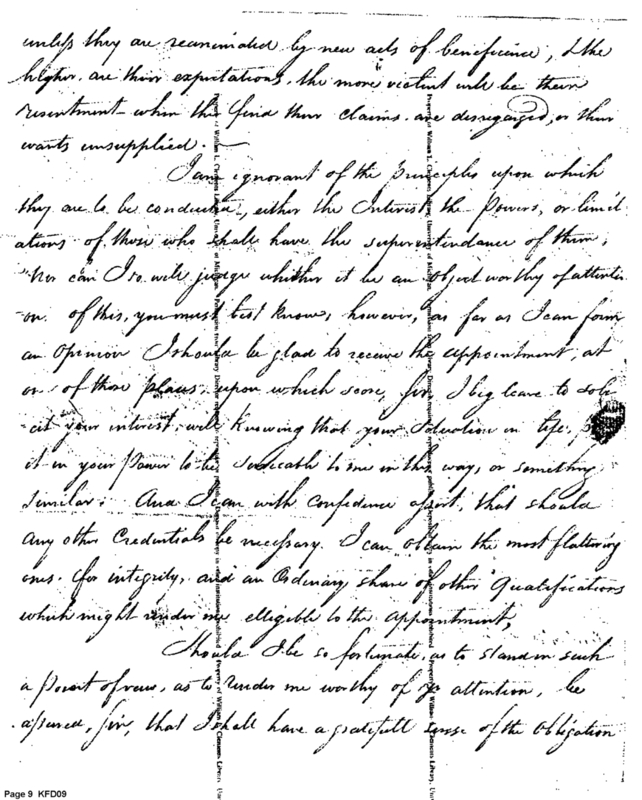 unless they are reanimated by new acts of beneficince, & the
higher are their expectations, the more violent will be their
resentment when the find their claims are disregarged, or their
wants unsupplied. —
I am ignorant of the principles upon which
they are to be conducted, either the Interest, the Powers, or limit
ations of those who shall have the superintendance of them;
Nor can I so well judge whether it be an Object worthy of attenti
on. of this, you must best know; however, as far as I can form
an Opinion I should be glad to receive the appointment, at
on of those places, upon which score, sir, I beg leave to soli
cit your interest, well knowing that your Situation in life,
it in your Power to be servicable to me in this way, or something
similar. And I can with confidence assert, that should
any other Credentials be necessary. I can obtain the most flattering
ones, for integrity, and an Ordinary share of other Qualifications
which might render me elligible to the appointment,
Should I be so fortunate, as to stand in such
a Point of view, as to render me worthy of yr attention, be
assured, sir, that I shall have a gratefull sense of the Obligation
Page 9 KFD09